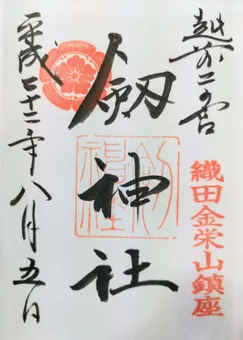 越前二の宮
織田金栄山鎮座
劔神社
劔神社
平成二十二年八月五日